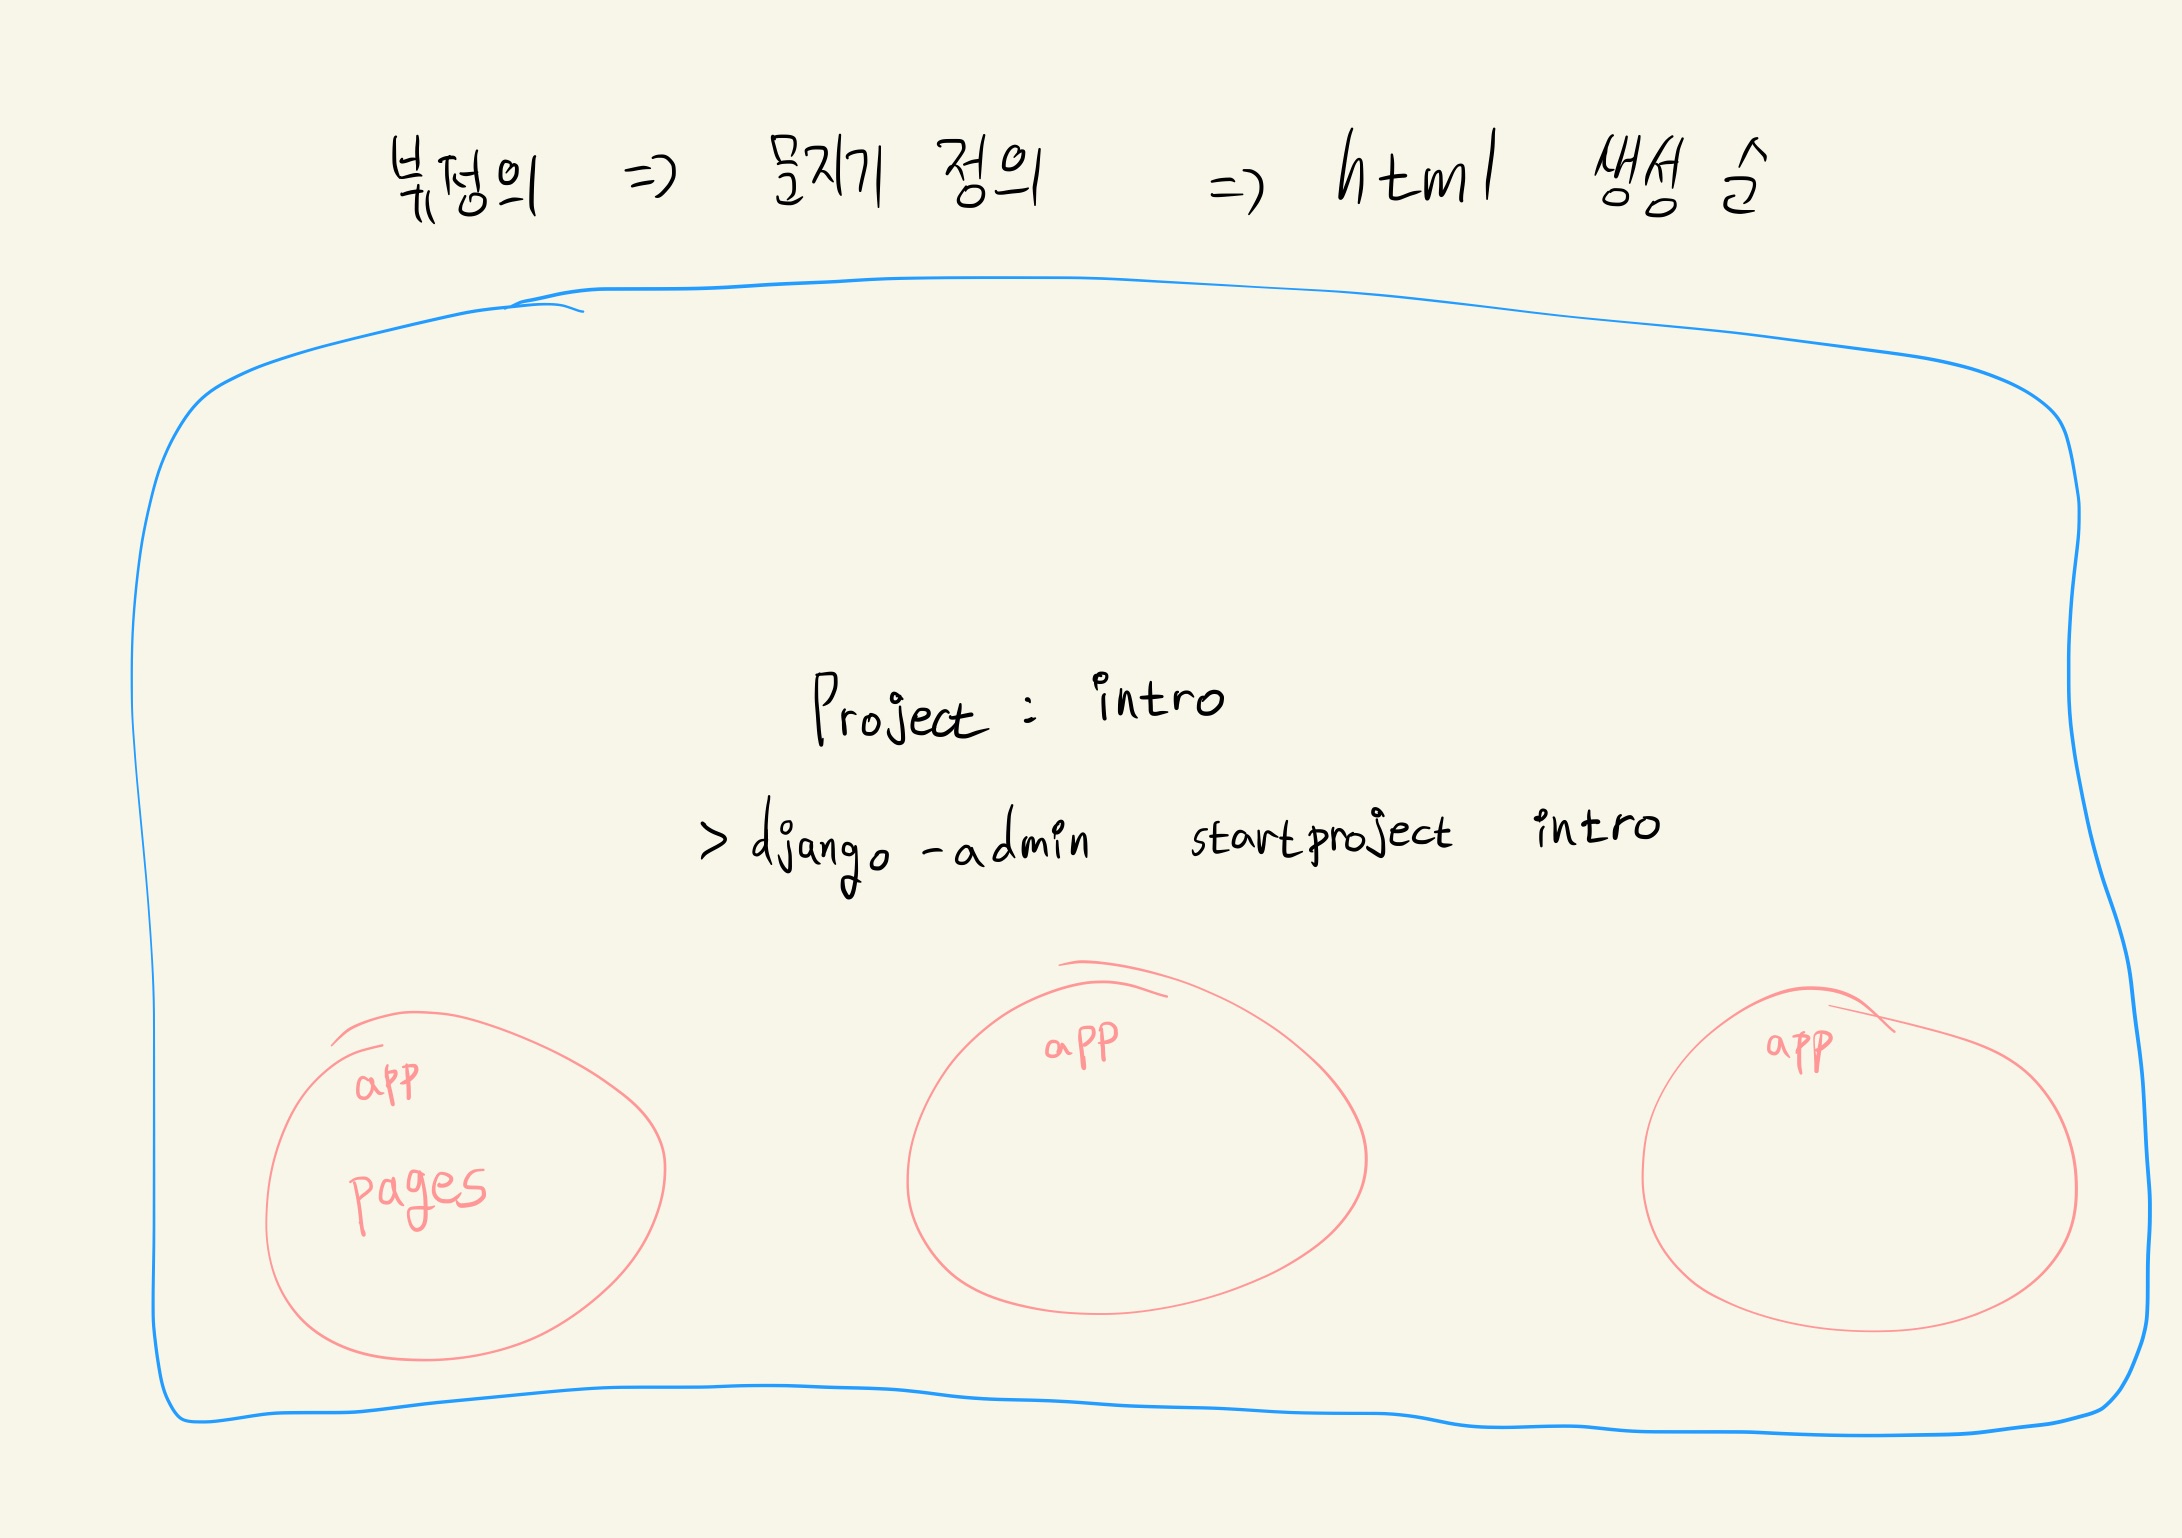 뷰정의 => 문지기 정의 => html 생성 순
Project : intro
> django - admin startproject intro
app
app
app
pages